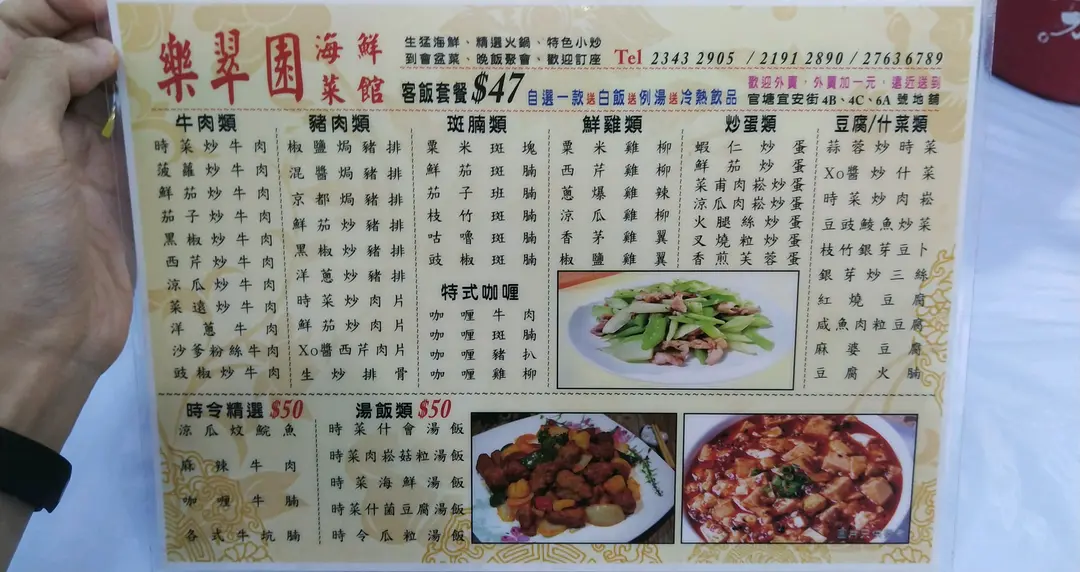 樂翠園 海鮮菜館
生猛海鮮、精選火鍋、特色小炒
到會盆菜、晚飯聚會、歡迎訂座
Tel 2343 2905 / 2191 2890 / 27636789
客飯套餐 $47 自選一款送白飯送例湯送冷熱飲品
歡迎外賣，外賣加一元，遠近送到
官塘宜安街4B、4C、6A 號地舖
牛肉類
時菜炒牛肉
菠蘿炒牛肉
鮮茄炒牛肉
茄子炒牛肉
黑椒炒牛肉
西芹炒牛肉
涼瓜炒牛肉
菜遠炒牛肉
洋蔥牛肉
沙爹粉絲牛肉
豉椒炒牛肉
豬肉類
椒鹽焗豬排
混醬焗豬排
京都焗豬排
鮮茄炒豬排
黑椒炒豬排
洋蔥炒豬排
時菜炒肉片
鮮茄炒肉片
Xo醬西芹肉片
生炒排骨
斑腩類
粟米斑塊
鮮茄斑腩
茄子班腩
枝竹斑腩
咕嚕斑腩
豉椒斑腩
特式咖喱
咖喱牛肉
咖喱斑腩
咖喱豬扒
咖喱雞柳
鮮雞類
粟米雞柳
西芹雞柳
蔥爆雞辣
涼瓜雞柳
香茅雞翼
椒鹽雞翼
炒蛋類
蝦仁炒蛋
鮮茄炒蛋
菜甫肉崧炒蛋
涼瓜肉崧炒蛋
火腿絲炒蛋
叉燒粒炒蛋
香煎芙蓉蛋
豆腐/什菜類
蒜蓉炒時菜
Xo醬炒什菜
時菜炒肉崧
豆豉鯪魚炒菜
枝竹銀芽豆卜
銀芽炒三絲
紅燒豆腐
咸魚肉粒豆腐
麻婆豆腐
豆腐火腩
時令精選 $50
涼瓜炆鯇魚
麻辣牛肉
咖喱牛腩
各式牛坑腩
湯飯類 $50
時菜什會湯飯
時菜肉崧菇粒湯飯
時菜海鮮湯飯
時菜什菌豆腐湯飯
時令瓜粒湯飯